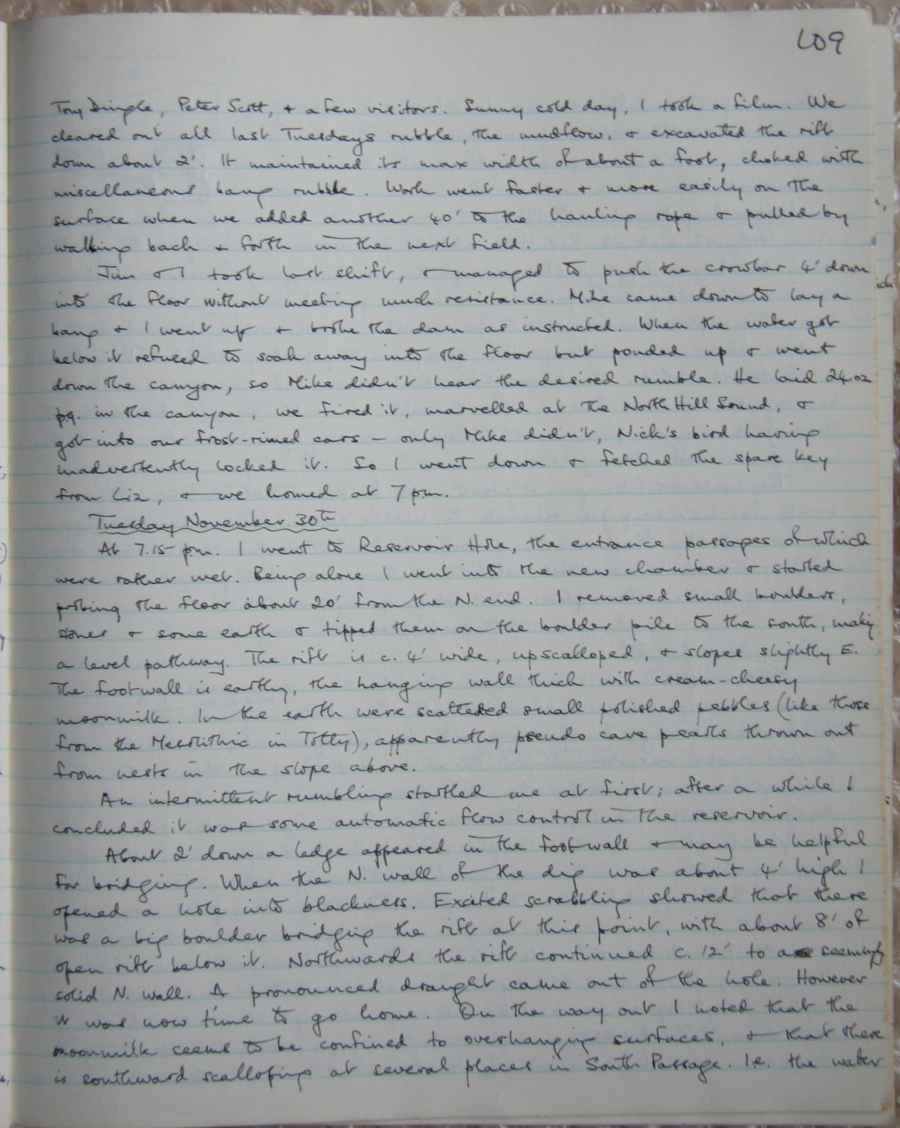 109
Tony Dingle, Peter Scott, + a few visitors. Sunny cold day, I took a film. We
cleared out all last Tuesdays rubble, the mudflow, + excavated the rift
down about 2'. It maintained its max width of about a foot, choked with
miscellaneous bang rubble. Work went faster + more easily on the
surface when we added another 40' to the hauling rope + pulled by
walking back + forth in the next field.
Jim + I took last shift, + managed to push the crowbar 4' down
into the floor without meeting much resistance. Mike came down to lay a
bang + I went up + broke the dam as instructed. When the water got
below it refused to soak away into the floor but ponded up + went
down the canyon, so Mike didn't hear the desired rumble. He laid 24 oz
pg. in the canyon, we fired it, marvelled at the North Hill Sound, +
got into our frost-rimed cars – only Mike didn't, Nick's bird having
inadvertently locked it. So I went down + fetched the spare key
from Liz, + we homed at 7 pm.
Tuesday November 30th
At 7.15 pm. I went to Reservoir Hole, the entrance passages of which
were rather wet. Being alone I went into the new chamber + started
probing the floor about 20' from the N. end. I removed small boulders,
stones + some earth + tipped them on the boulder pile to the south, making
a level pathway. The rift is c. 4' wide, upscalloped, + slopes slightly E.
The footwall is earthy, the hanging wall thick with cream-cheesy
moonmilk. In the earth were scattered small polished pebbles (like those
from the Mesolithic in Totty), apparently pseudo cave pearls thrown out
from nests in the slope above.
An intermittent rumbling startled me at first; after a while I
concluded it was some automatic flow control in the reservoir.
About 2' down a ledge appeared in the footwall + may be helpful
for bridging. When the N. wall of the dig was about 4' high I
opened a hole into blackness. Excited scrabbling showed that there
was a big boulder bridging the rift at this point, with about 8' of
open rift below it. Northwards the rift continued c. 12' to a seemingly
solid N. wall. A pronounced draught came out of the hole. However
it was now time to go home. On the way out I noted that the
moonmilk seems to be confined to overhanging surfaces, + that there
is southward scalloping at several places in South Passage. I.e. the water